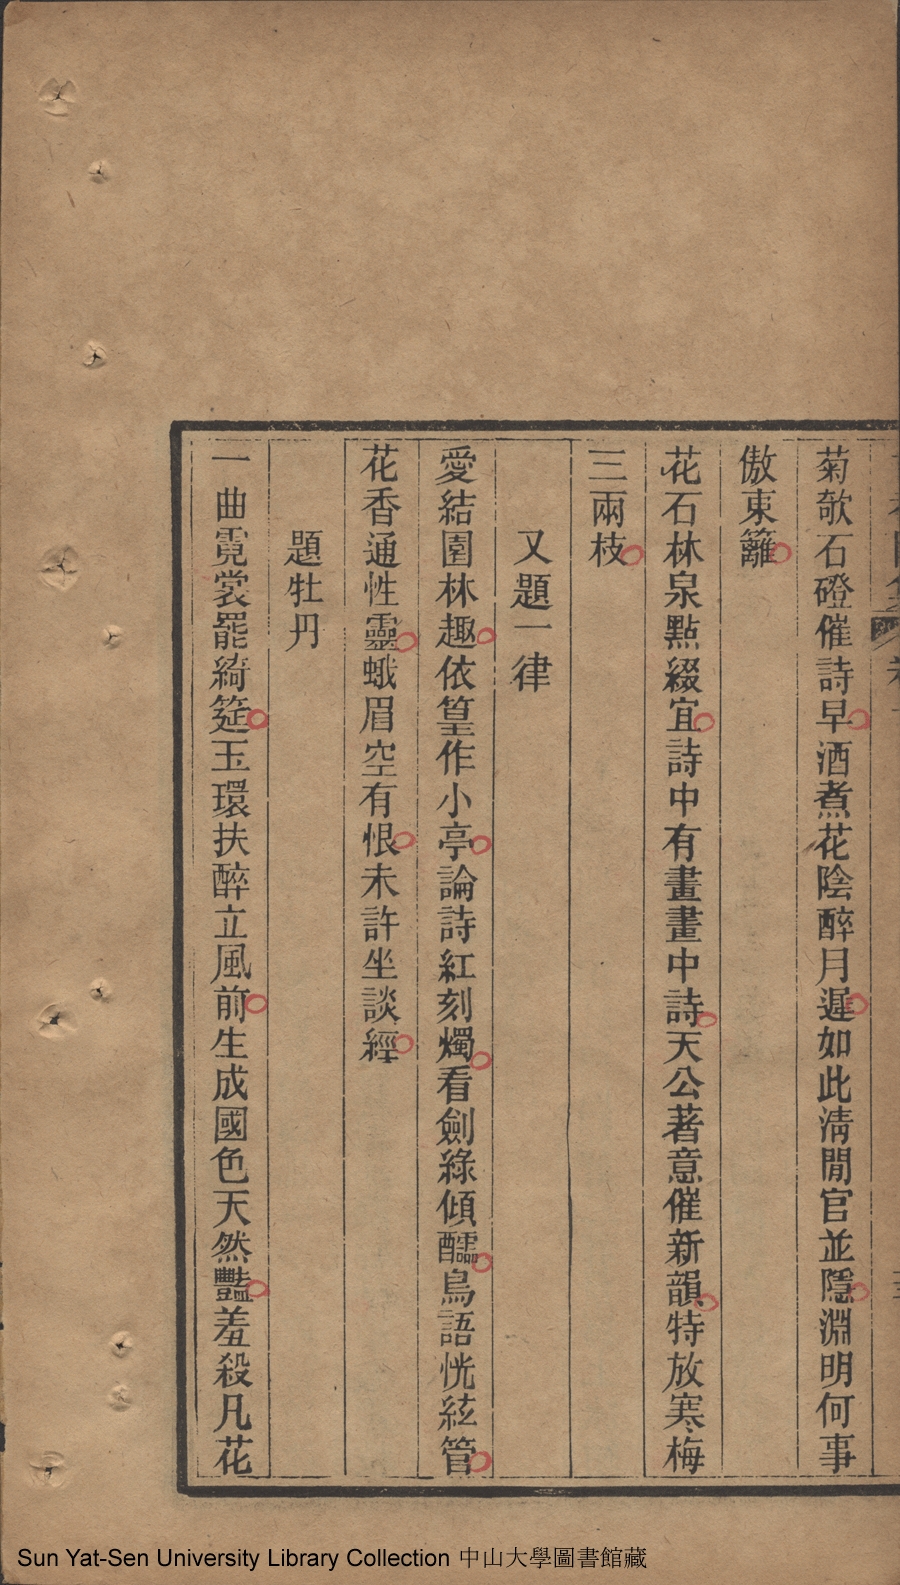 菊欹石磴催詩早酒煮花陰醉月遲如此淸閒官並隱淵明何事
傲東籬
花石林泉點綴宜詩中有畫畫中詩天公著意催新韻特放寒梅
三兩枝
又題一律
愛結園林趣依篁作小亭論詩紅刻燭看劍綠傾醽鳥語恍絃管
花香通性靈蛾眉空有恨未許坐談經
題牡丹
一曲霓裳罷綺筵玉環扶醉立風前生成國色天然豔羞殺凡花
Sun Yat-Sen University Library Collection 中山大學圖書館藏